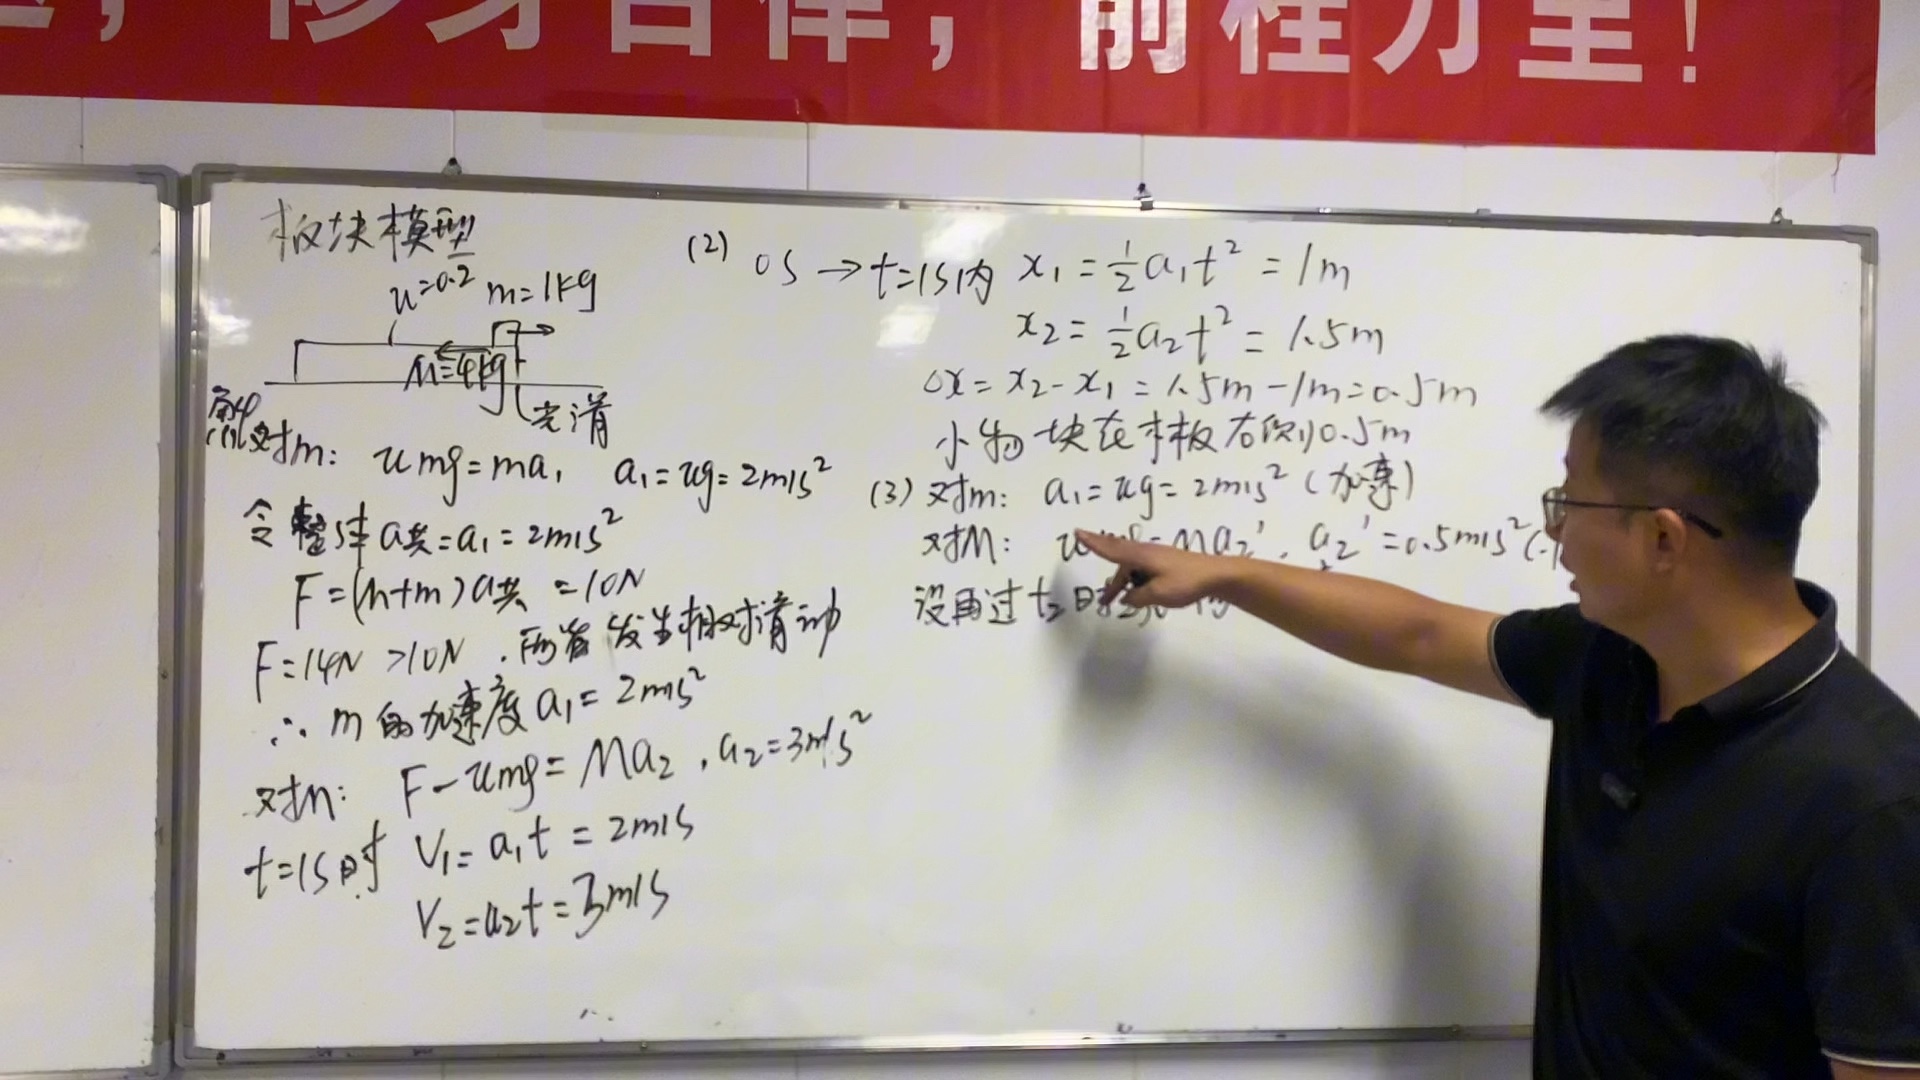 修身自律，前程万里！
板块模型
u=0.2 m=1kg
M=4kg
光滑
解
(1)对m: umg=ma₁ a₁=ug=2m/s²
令整体a共=a₁=2m/s²
F=(M+m)a共=10N
F=14N>10N，所以发生相对滑动
∴m的加速度a₁=2m/s²
对M: F-umg=Ma₂，a₂=3m/s²
t=1s时 V₁=a₁t=2m/s
V₂=a₂t=3m/s
(2) 0s→t=1s内 x₁=½a₁t²=1m
x₂=½a₂t²=1.5m
△x=x₂-x₁=1.5m-1m=0.5m
小物块在木板右侧0.5m
(3)对m: a₁=ug=2m/s²(加速)
对M: umg=Ma₂'，a₂'=0.5m/s²(
设再过t₂时